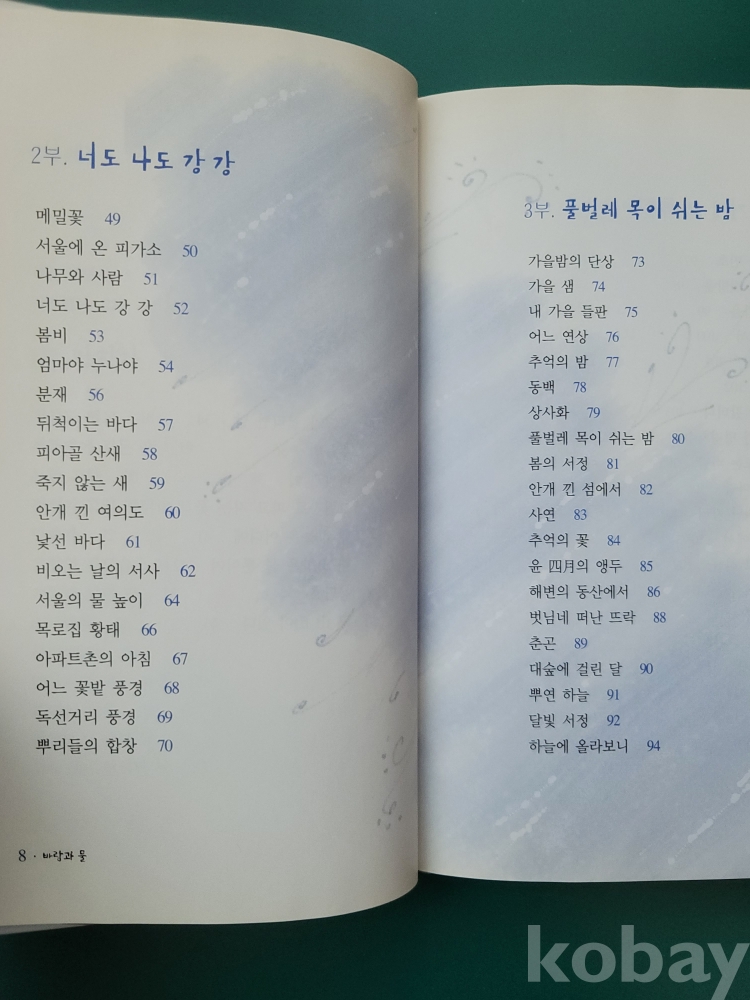 2부. 너도 나도 강 강
메밀꽃 49
서울에 온 피가소 50
나무와 사람 51
너도 나도 강 강 52
봄비 53
엄마야 누나야 54
분재 56
뒤척이는 바다 57
피아골 산새 58
죽지 않는 새 59
안개 낀 여의도 60
낯선 바다 61
비오는 날의 서사 62
서울의 물 높이 64
목로집 황태 66
아파트촌의 아침 67
어느 꽃밭 풍경 68
독선거리 풍경 69
뿌리들의 합창 70
8 · 바람과 물
3부. 풀벌레 목이 쉬는 밤
가을밤의 단상 73
가을 샘 74
내 가을 들판 75
어느 연상 76
추억의 밤 77
동백 78
상사화 79
풀벌레 목이 쉬는 밤 80
봄의 서정 81
안개 낀 섬에서 82
사연 83
추억의 꽃 84
윤 四月의 앵두 85
해변의 동산에서 86
벗님네 떠난 뜨락 88
춘곤 89
대숲에 걸린 달 90
뿌연 하늘 91
달빛 서정 92
하늘에 올라보니 94
kobay